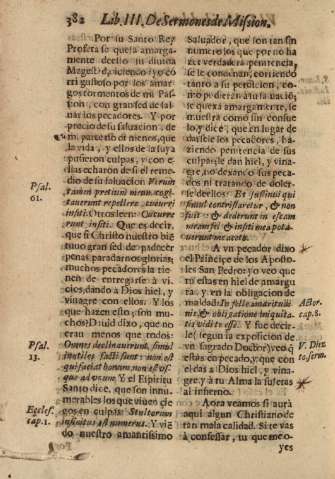 382 Lib. III. De Sermones de Mission.
Por su Santo Rey
Profeta se queja amarga-
mente deesto su divina
Magestad, diciendo: yo co-
rri gustoso por los amar-
gos tormentos de mi Pas-
sion, con gran sed de sal-
nar los pecadores. Y por
precio de su saluacion, de
m, parte las de bienes, que
la vida, y ellos de la suya
pusieron culpas, y con e-
llas echaron de si el reme-
dio de su saluacion Verum
tamen pretium meum cogi-
tauerunt repellere, cucurri
insiti. Otros leen: Cucurre
runt insiti. Que es decir,
que si Christo nuestro bié
tuuo gran sed de padecer
penas para darnos glorias;
muchos pecadores la tie-
nen de entregarse à vi-
cios, dando à Dios hiel, y
vinagre con ellos. Y los
que hazen esto, son mu-
chos? Dauid dixo, que no
eran menos que todos:
Omnes declinauerunt, simul
inutiles facti sunt: non est
qui faciat bonum, non est us-
que ad vnum. Y el Espiritu
Santo dice, que son innu-
merables los que viuen cie-
gos en culpas: Stultorum
infinitus est numerus. Y vié
do nuestro amantissimo
Psal.
61.
Psal.
13.
Eccles.
cap. 1.
Saluador, que son tan sin
numero los que por no ha
zer verdadera penitencia,
se le condenan, corriendo
tanto a su perdicion, co-
mo pudieran a su salud;
se quexa amargamente, se
muestra como sin consue
lo, y dice; que en lugar de
darsele los pecadores, ha-
ziendo penitencia de sus
culpas; le dan hiel, y vina-
gre, no dexando sus peca-
dos ni tratando de doler-
se de ellos: Et sustinui qui
simul contristaretur, & non
fuit: & dederunt in escam
meam fel & in siti mea pota
uerunt me aceto.
A vn pecador dixo
el Principe de los Aposto-
les San Pedro: yo veo que
tu estas en hiel de amargu
ra, y en la obligacion de
maldad: In felle amaritudi-
nis, & obligatione iniquita-
tis video te esse. Y fue decir-
le (segun la exposicion de
vn Sagrado Doctor) veo q̃
estàs en pecado, y que con
el das a Dios hiel, y vina-
gre, y à tu Alma la sujetas
al infierno.
Aora veamos si aurà
aqui algun Christiano de
tan mala calidad. Si te vas
à confessar, tu que me o-
yes
Actor.
cap. 8.